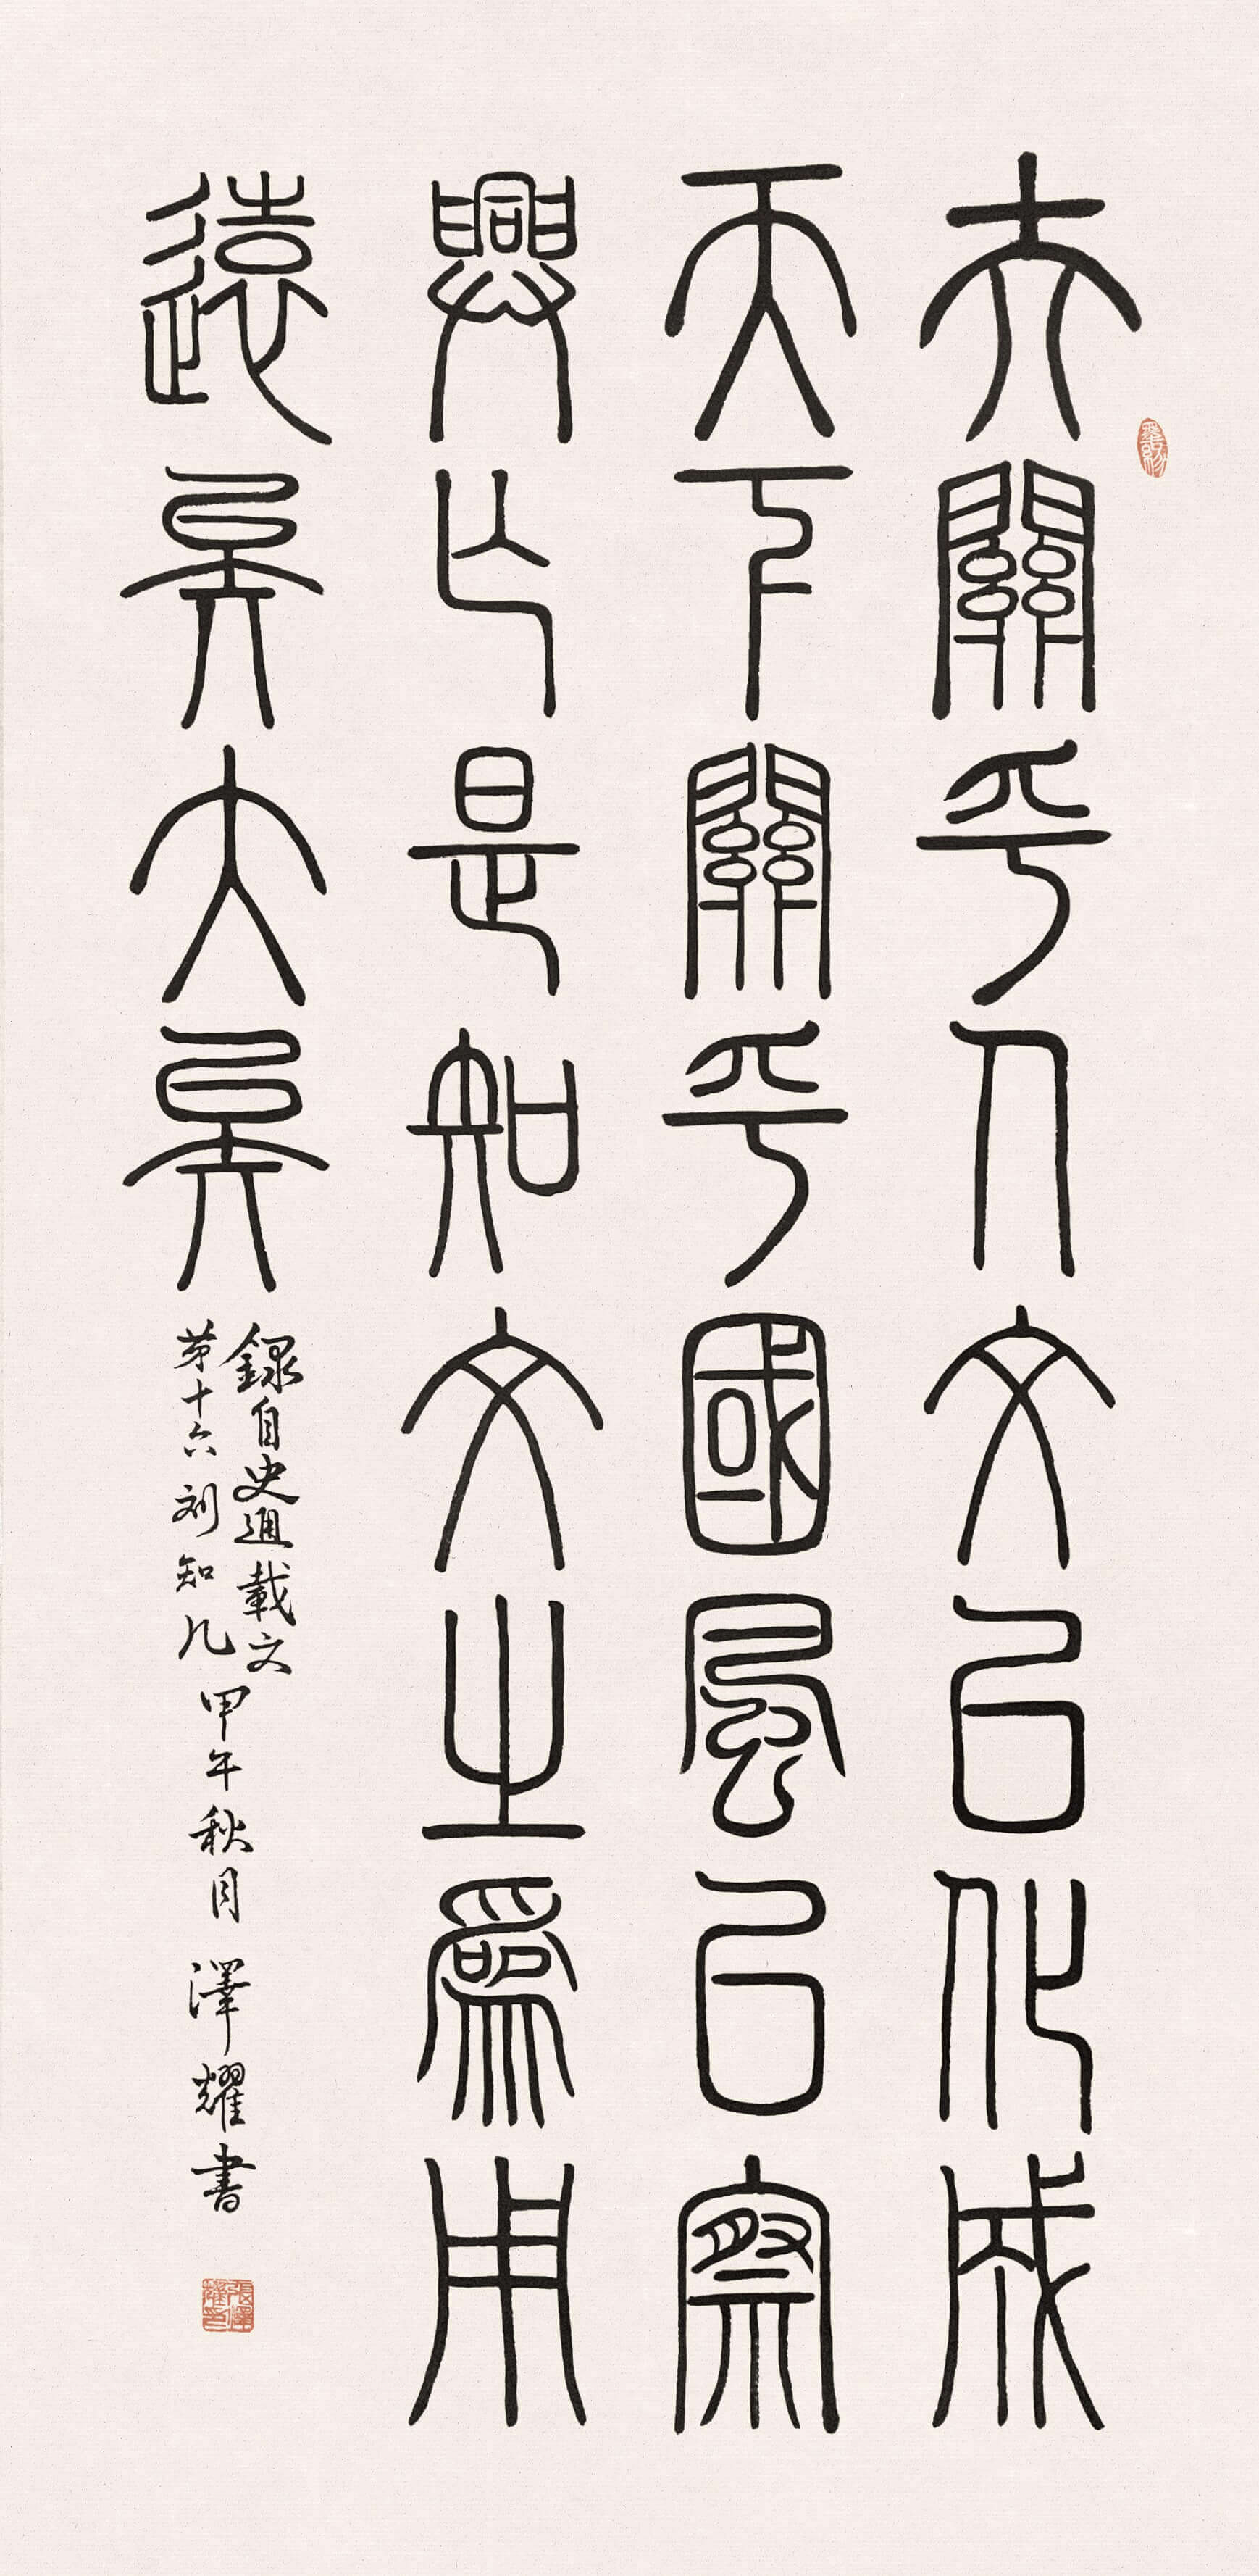 夫關乎人文以化成
天下關乎國風以察
興亡是知文之爲用
遠矣大矣
錄自史通載文
第十六刘知几
甲午秋月 澤耀書
張澤耀印